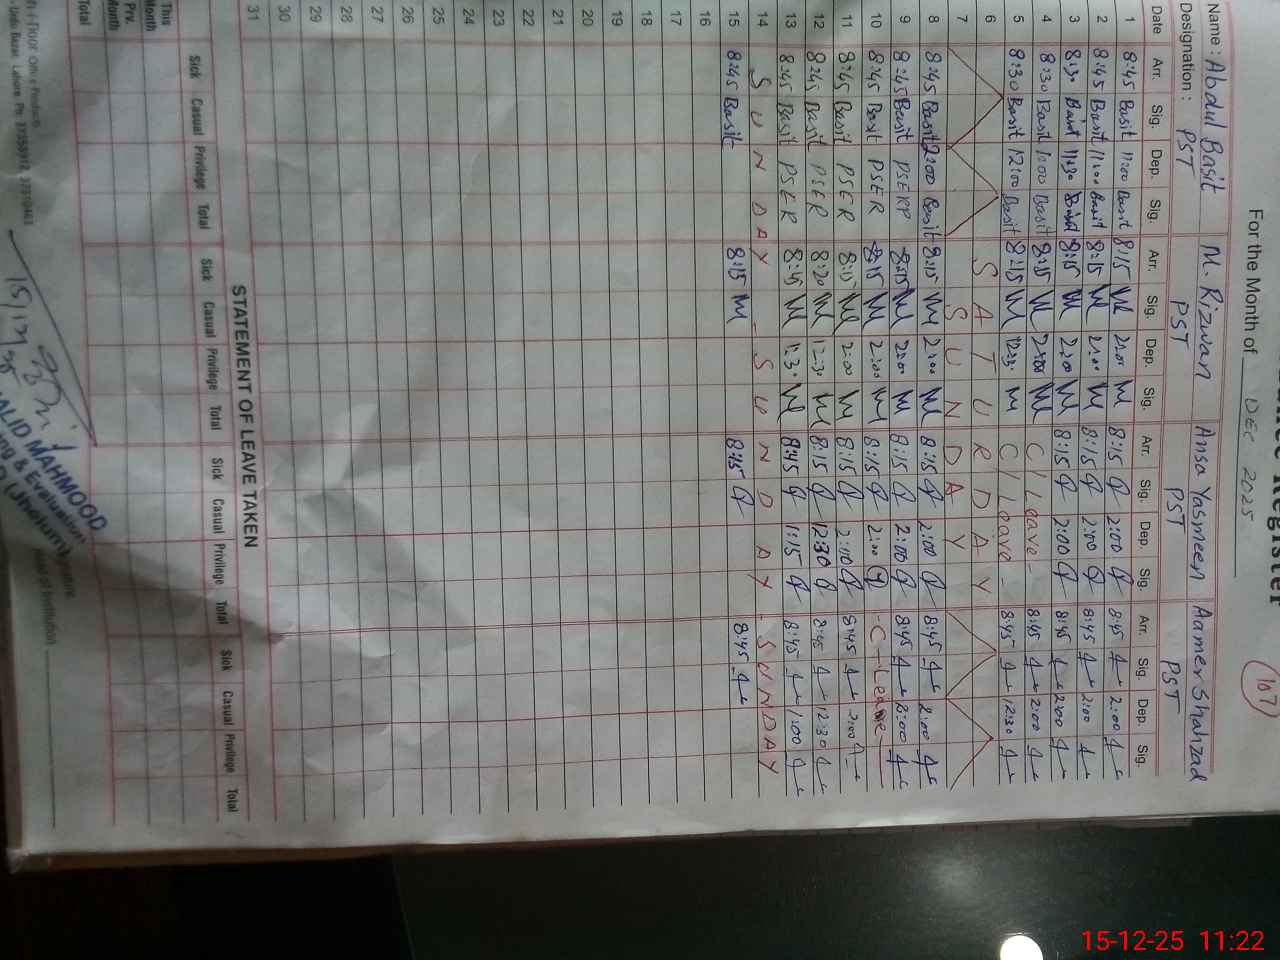 For the Month of DEC 2025
107
Name : Abdul Basit M. Rizwan Ansa Yasmeen Aamer Shahzad
Designation : PST PST PST PST
Date Arr. Sig. Dep. Sig. Arr. Sig. Dep. Sig. Arr. Sig. Dep. Sig. Arr. Sig. Dep. Sig.
1 8:45 Basit 11:00 Basit 8:15 2:00 8:15 2:00 8:45 2:00
2 8:45 Basit 11:00 Basit 8:15 2:00 8:15 2:00 8:45 2:00
3 8:30 Basit 11:30 Basit 8:15 2:00 8:15 2:00 8:45 2:00
4 8:30 Basit 1:00 Basit 8:15 2:00 C/Leave - 8:45 2:00
5 8:30 Basit 12:00 Basit 8:15 12:30 C/Leave - 8:45 12:30
6 SATURDAY
7 SUNDAY
8 8:45 Basit 2:00 Basit 8:15 2:00 8:15 2:00 8:45 2:00
9 8:45 Basit PSER 8:15 2:00 8:15 2:00 8:45 2:00
10 8:45 Basit PSER 8:15 2:00 8:15 2:00 - C - Leave
11 8:45 Basit PSER 8:15 2:00 8:15 2:00 8:45 2:00
12 8:45 Basit PSER 8:20 12:30 8:15 12:30 8:45 12:30
13 8:45 Basit PSER 8:45 1:30 8:45 1:15 8:45 1:00
14 SUNDAY - SUNDAY - SUNDAY
15 8:45 Basit 8:15 8:15 8:45
16
17
18
19
20
21
22
23
24
25
26
27
28
29
30
31
STATEMENT OF LEAVE TAKEN
Sick Casual Privilege Total Sick Casual Privilege Total Sick Casual Privilege Total Sick Casual Privilege Total
This Month
Prv. Month
Total
15/12/25
MAHMOOD
& Evaluation
15-12-25 11:22